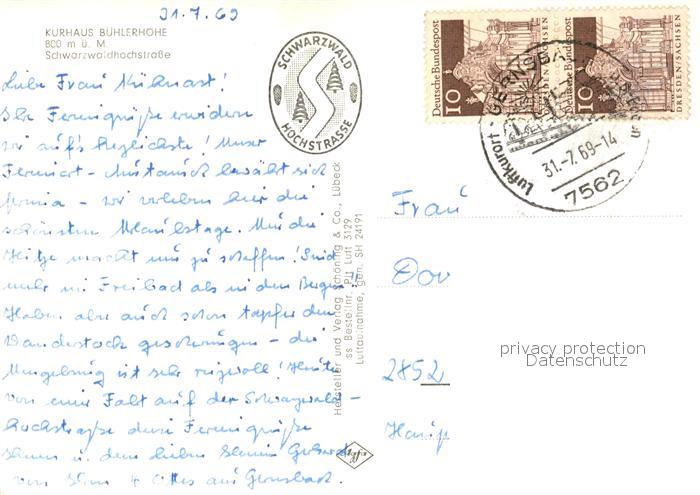 31.7.69
KURHAUS BÜHLERHÖHE
800 m ü. M.
Schwarzwaldhochstraße
SCHWARZWALD
HOCHSTRASSE
Deutsche Bundespost
10
DRESDEN/SACHSEN
Deutsche Bundespost
10
DRESDEN/SACHSEN
Luftkurort · GERNSBA
31.-7.69-14
7562
Liebe Frau
Ihre Feriengrüße erwidern
wir auf's herzlichste! Unser
Ferienort-
- wir verleben hier die
schönsten Urlaubstage. Nur die
Hitze macht uns zu schaffen! Sind
mehr im Freibad als in den Bergen!
Haben aber auch schon tapfer den
Wanderstock geschwungen - die
Umgebung ist sehr reizvoll! Heute
von einer Fahrt auf der Schwarzwald-
hochstraße diese Feriengrüße
Ihnen u. dem lieben
von Ihren aus Gernsbach.
Hersteller und Verlag Schöning & Co., Lübeck
ss Bestellnr. Plt Luft 3129
Luftaufnahme, gen. SH 24191
Agfa
Frau
Dor
2852
privacy protection
Datenschutz